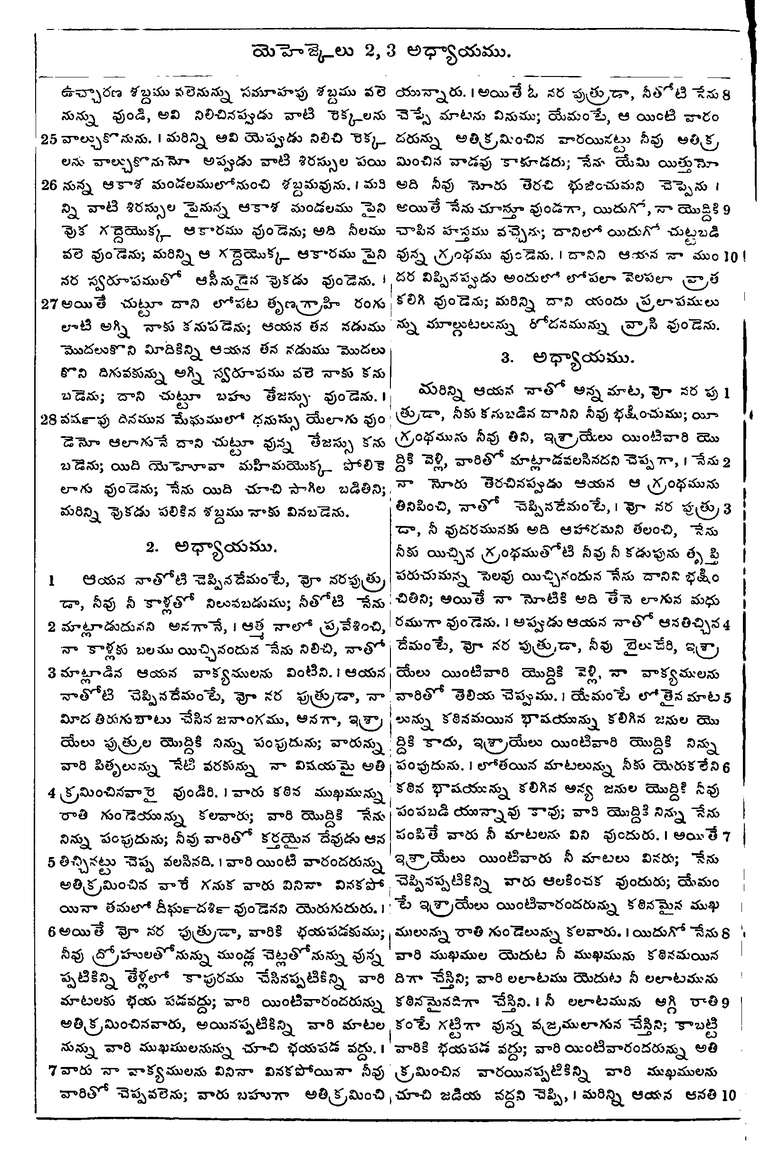 యెహెజ్కెలు 2, 3 అధ్యాయము.
ఉచ్చారణ శబ్దము వలెనున్ను సమూహపు శబ్దము వలె
నున్ను వుండి, అవి నిలిచినప్పుడు వాటి రెక్కలను
25 వాల్చుకొనును. । మరిన్ని అవి యెప్పుడు నిలిచి రెక్క
లను వాల్చుకొనునో అప్పుడు వాటి శిరస్సుల పయి
26 నున్న ఆకాశ మండలములోనుంచి శబ్దమవును. । మరి
న్ని వాటి శిరస్సుల పైనున్న ఆకాశ మండలము పైని
వొక గద్దెయొక్క ఆకారము వుండెను; అది నీలము
వలె వుండెను; మరిన్ని ఆ గద్దెయొక్క ఆకారము పైని
నర స్వరూపముతో ఆసీనుడైన వొకడు వుండెను. ।
27 అయితే చుట్టూ దాని లోపట తృణగ్రాహి రంగు
లాటి అగ్ని నాకు కనుపడెను; ఆయన తన నడుము
మొదలుకొని మీదికిన్ని ఆయన తన నడుము మొదలు
కొని దిగువకున్ను అగ్ని స్వరూపము వలె నాకు కను
బడెను; దాని చుట్టూ బహు తేజస్సు వుండెను. ।
28 వర్షపు దినమున మేఘములో ధనుస్సు యేలాగు వుం
డెనో ఆలాగునే దాని చుట్టూ వున్న తేజస్సు కను
బడెను; యిది యెహోవా మహిమయొక్క పోలికె
లాగు వుండెను; నేను యిది చూచి సాగిల బడితిని;
మరిన్ని వొకడు పలికిన శబ్దము నాకు వినబడెను.
2. అధ్యాయము.
1 ఆయన నాతోటి చెప్పినదేమంటే, వో నరపుత్రు
డా, నీవు నీ కాళ్లతో నిలువబడుము; నీతోటి నేను
2 మాట్లాడుదునని అనగానే, । ఆత్మ నాలో ప్రవేశించి,
నా కాళ్లకు బలము యిచ్చినందున నేను నిలిచి, నాతో
3 మాట్లాడిన ఆయన వాక్యములను వింటిని. । ఆయన
నాతోటి చెప్పినదేమంటే, వో నర పుత్రుడా, నా
మీద తిరుగుబాటు చేసిన జనాంగము, అనగా, ఇశ్రా
యేలు పుత్రుల యొద్దికి నిన్ను పంపుదును; వారున్ను
వారి పితృలున్ను నేటి వరకున్ను నా విషయమై అతి
4 క్రమించినవారై వుండిరి. । వారు కఠిన ముఖమున్ను
రాతి గుండెయున్ను కలవారు; వారి యొద్దికె నేను
నిన్ను పంపుదును; నీవు వారితో కర్తయైన దేవుడు ఆన
5 తిచ్చినట్టు చెప్ప వలసినది. । వారి యింటి వారందరున్ను
అతిక్రమించిన వారే గనుక వారు వినినా వినకపో
యినా తమలో దీర్ఘదర్శి వుండెనని యెరుగుదురు. ।
6 అయితే వో నర పుత్రుడా, వారికి భయపడకుము;
నీవు ద్రోహులతోనున్ను ముండ్ల చెట్లతోనున్ను వున్న
ప్పటికిన్ని తేళ్లలో కాపురము చేసినప్పటికిన్ని వారి
మాటలకు భయ పడవద్దు; వారి యింటివారందరున్ను
అతిక్రమించినవారు, అయినప్పటికిన్ని వారి మాటల
నున్ను వారి ముఖములనున్ను చూచి భయపడ వద్దు. ।
7 వారు నా వాక్యములను వినినా వినకపోయినా నీవు
వారితో చెప్పవలెను; వారు బహుగా అతిక్రమించి
యున్నారు. । అయితే ఓ నర పుత్రుడా, నీతోటి నేను 8
చెప్పే మాటను వినుము; యేమంటే, ఆ యింటి వారం
దరున్ను అతిక్రమించిన వారయినట్టు నీవు అతిక్ర
మించిన వాడవు కాకూడదు; నేను యేమి యిత్తునో
అది నీవు నోరు తెరచి భుజించుమని చెప్పెను ।
అయితే నేను చూస్తూ వుండగా, యిదుగో, నా యొద్దికి 9
చాపిన హస్తము వచ్చెను; దానిలో యిదుగో చుట్టబడి
వున్న గ్రంథము వుండెను. । దానిని ఆయన నా ముం 10
దర విప్పినప్పుడు అందులో లోపలా వెలపలా వ్రాత
కలిగి వుండెను; మరిన్ని దాని యందు ప్రలాపములు
న్ను మూల్గుటలున్ను రోదనమున్ను వ్రాసి వుండెను.
3. అధ్యాయము.
మరిన్ని ఆయన నాతో అన్న మాట, వో నర పు 1
త్రుడా, నీకు కనుబడిన దానిని నీవు భక్షించుము; యీ
గ్రంథమును నీవు తిని, ఇశ్రాయేలు యింటివారి యొ
ద్దికి వెళ్లి, వారితో మాట్లాడవలసినదని చెప్పగా, । నేను 2
నా నోరు తెరచినప్పుడు ఆయన ఆ గ్రంథమును
తినిపించి, నాతో చెప్పినదేమంటే, । వో నర పుత్రు 3
డా, నీ వుదరమునకు అది ఆహారమని తలంచి, నేను
నీకు యిచ్చిన గ్రంథముతోటి నీవు నీ కడుపును తృప్తి
పరుచుమన్న సెలవు యిచ్చినందున నేను దానిని భక్షిం
చితిని; అయితే నా నోటికి అది తేనె లాగున మధు
రముగా వుండెను. । అప్పుడు ఆయన నాతో ఆనతిచ్చిన 4
దేమంటే, వో నర పుత్రుడా, నీవు బైలుదేరి, ఇశ్రా
యేలు యింటివారి యొద్దికి వెళ్లి, నా వాక్యములను
వారితో తెలియ చెప్పుము. । యేమంటే లోతైన మాట 5
లున్ను కఠినమయిన భాషయున్ను కలిగిన జనుల యొ
ద్దికి కాదు, ఇశ్రాయేలు యింటివారి యొద్దికి నిన్ను
పంపుదును. । లోతయిన మాటలున్ను నీకు యెరుకలేని 6
కఠిన భాషయున్ను కలిగిన అన్య జనుల యొద్దికె నీవు
పంపబడి యున్నావు కావు; వారి యొద్దికె నిన్ను నేను
పంపితే వారు నీ మాటలను విని వుందురు. । అయితే 7
ఇశ్రాయేలు యింటివారు నీ మాటలు వినరు; నేను
చెప్పినప్పటికిన్ని వారు ఆలకించక వుందురు; యేమం
టే ఇశ్రాయేలు యింటివారందరున్ను కఠినమైన ముఖ
ములున్ను రాతి గుండెలున్ను కలవారు. । యిదుగో నేను 8
వారి ముఖముల యెదుట నీ ముఖమును కఠినమయిన
దిగా చేస్తిని; వారి లలాటము యెదుట నీ లలాటమును
కఠినమైనదిగా చేస్తిని. । నీ లలాటమును అగ్గి రాతి 9
కంటే గట్టిగా వున్న వజ్రములాగున చేస్తిని; కాబట్టి
వారికి భయపడ వద్దు; వారి యింటివారందరున్ను అతి
క్రమించిన వారయినప్పటికిన్ని వారి ముఖములను
చూచి జడియ వద్దని చెప్పి, । మరిన్ని ఆయన ఆనతి 10